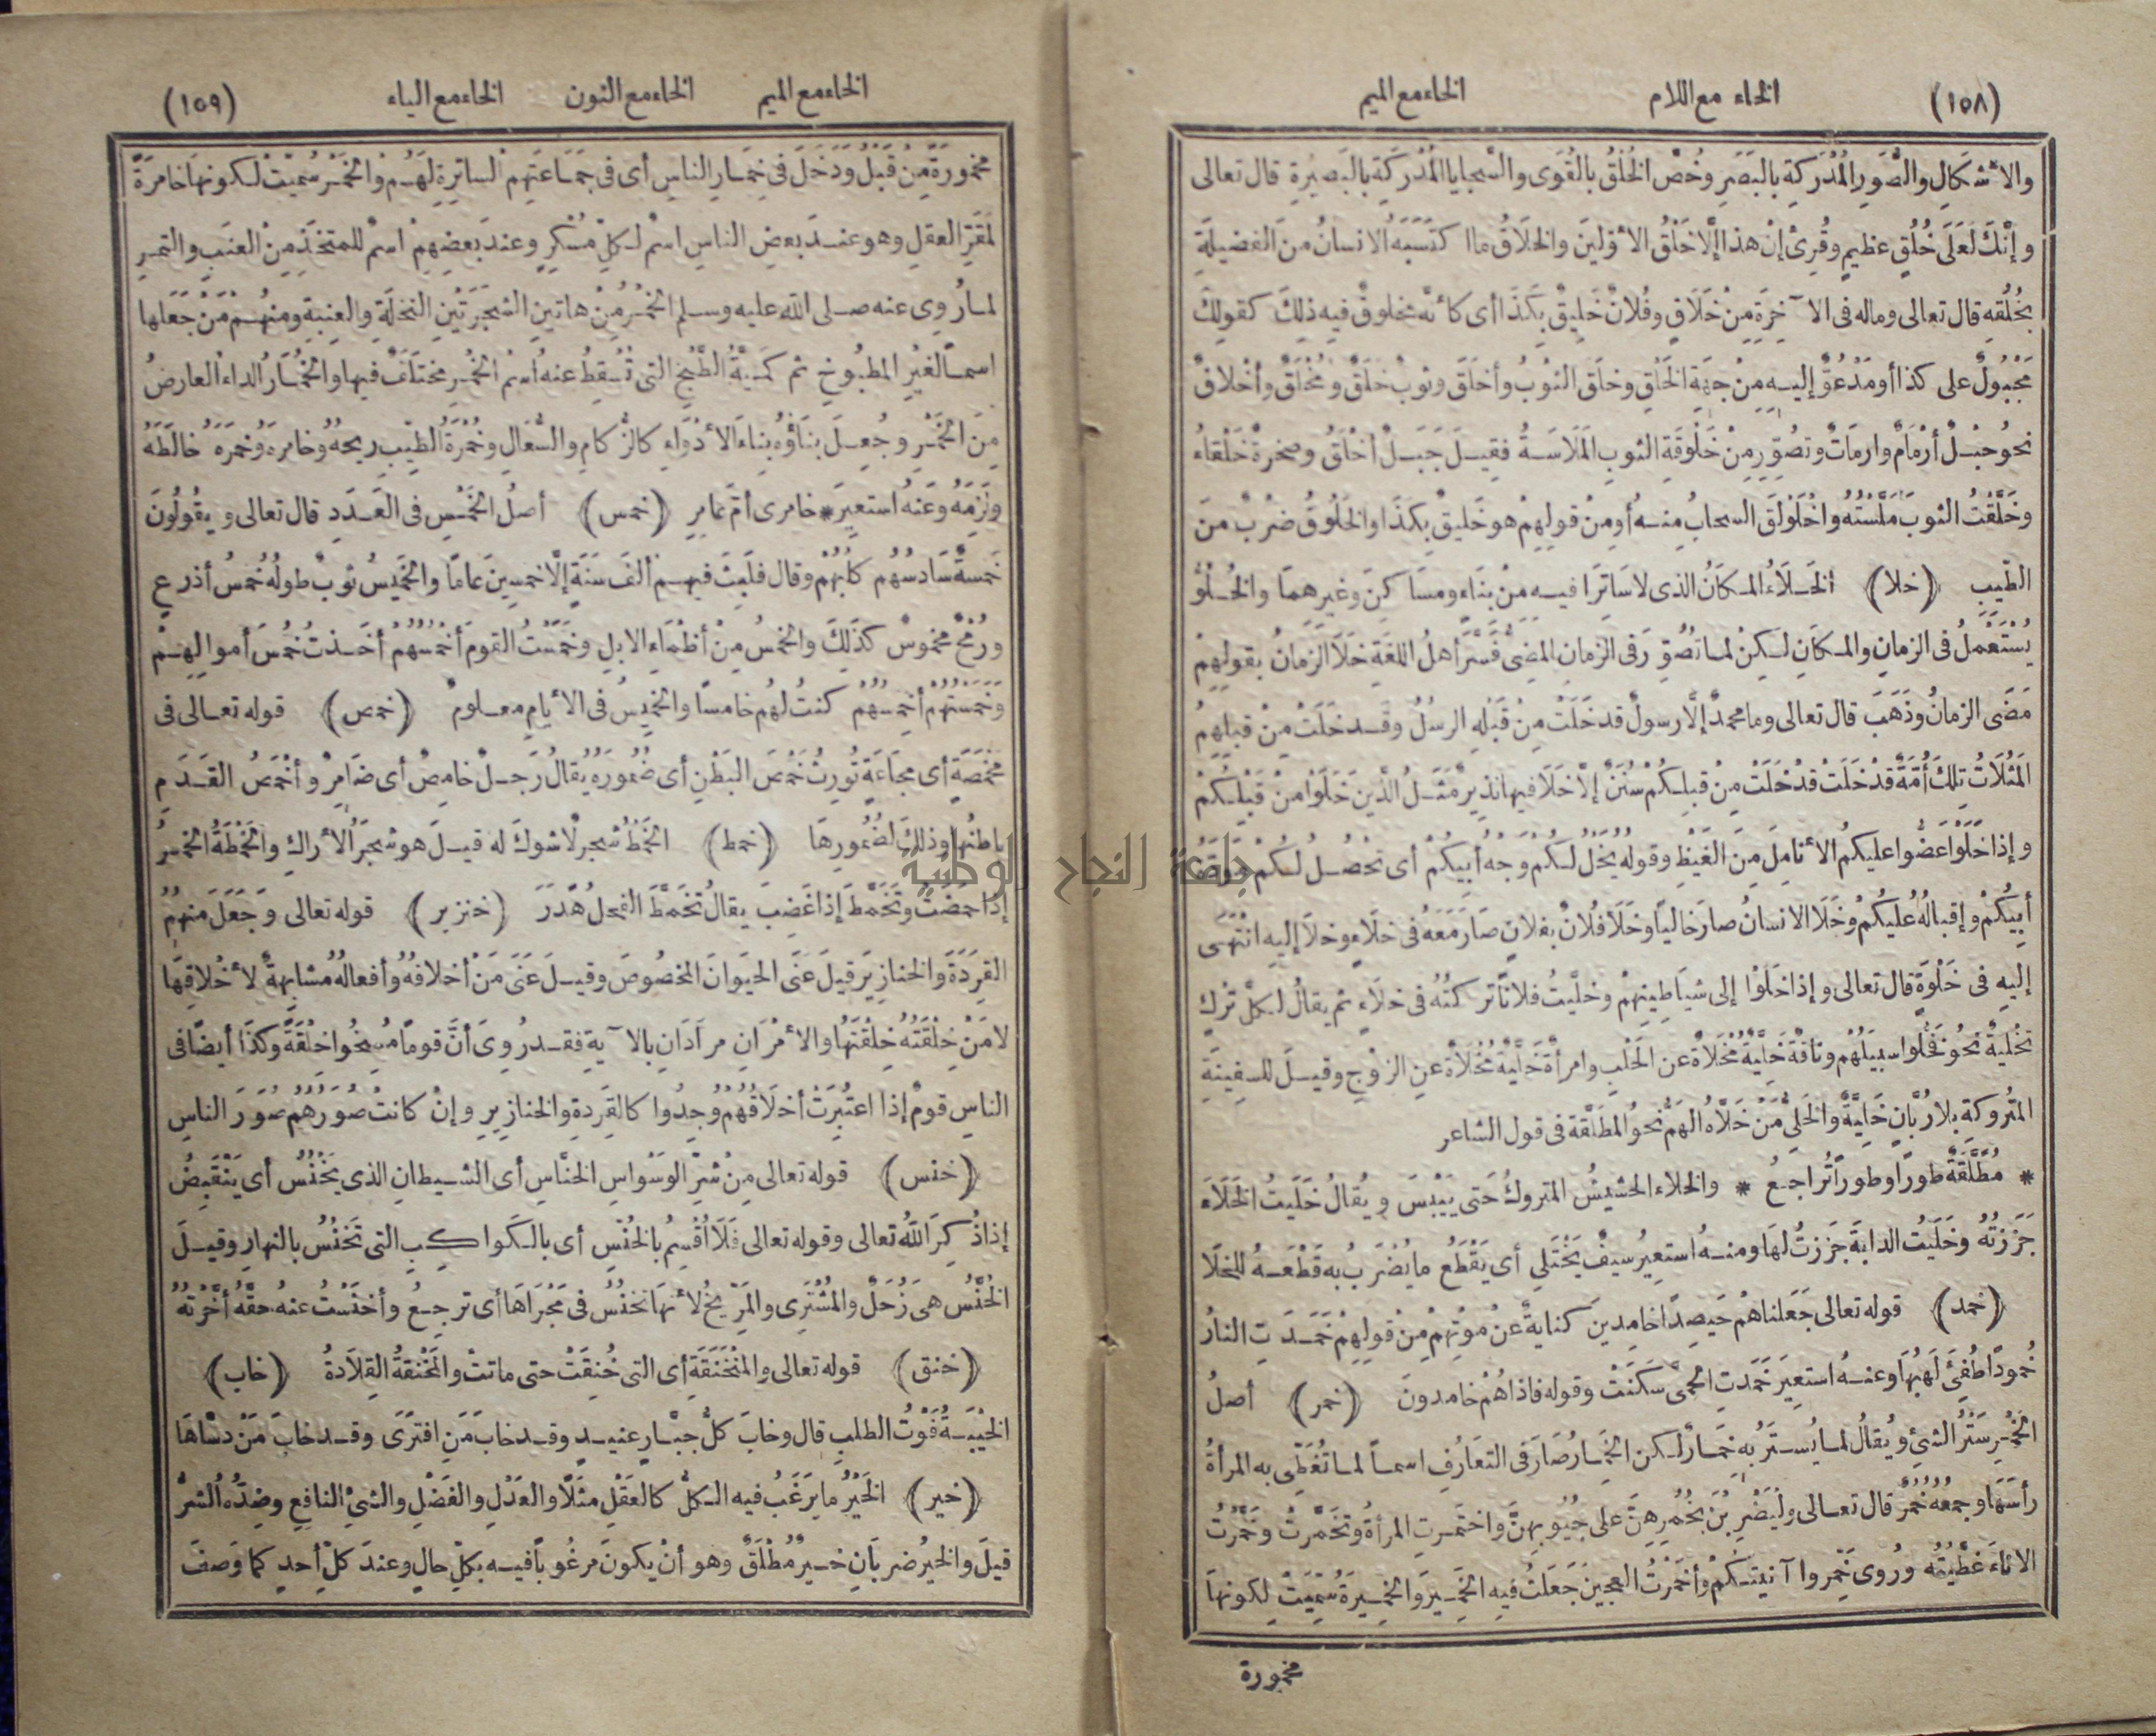 (١٥٨) الخاء مع اللام الخاء مع الميم
والاشكال والصور المدركة بالبصر وخص الخلق بالقوى والسجايا المدركة بالبصيرة قال تعالى
وإنك لعلى خلق عظيم وقرئ إن هذا إلا خلق الأولين والخلاق ما اكتسبه الانسان من الفضيلة
بخلقه قال تعالى وماله فى الآخرة من خلاق وفلان خليق بكذا أى كأنه مخلوق فيه ذلك كقولك
مجبول على كذا أو مدعو إليه من جهة الخلق وخلق الثوب وأخلق وثوب خلق ومخلق وأخلاق
نحو حبل أرمام وارمات وتصور من خلوقة الثوب الملاسة فقيل جبل أخلق وصخرة خلقاء
وخلقت الثوب ملسته واخلولق السحاب منه أو من قولهم هو خليق بكذا والخلوق ضرب من
الطيب (خلا) الخلاء المكان الذى لا ساتر فيه من بناء ومساكن وغيرهما والخلو
يستعمل فى الزمان والمكان لكن لما تصور فى الزمان المضى فسر أهل اللغة خلا الزمان بقولهم
مضى الزمان وذهب قال تعالى وما محمد إلا رسول قد خلت من قبله الرسل وقد خلت من قبلهم
المثلات تلك أمة قد خلت قد خلت من قبلكم سنن إلا خلا فيها نذير مثل الذين خلوا من قبلكم
وإذا خلوا عضوا عليكم الأنامل من الغيظ وقوله يخل لكم وجه أبيكم أى تحصل لكم مودة
أبيكم وإقباله عليكم وخلا الانسان صار خاليا وخلا فلان بفلان صار معه فى خلاء وخلا إليه انتهى
إليه فى خلوة قال تعالى وإذا خلوا إلى شياطينهم وخليت فلانا تركته فى خلاء ثم يقال لكل ترك
تخلية نحو فخلوا سبيلهم وناقة خلية مخلاة عن الحلب وامرأة خلية مخلاة عن الزوج وقيل للسفينة
المتروكة بلا ربان خلية والخلى من خلاه الهم نحو المطلقة فى قول الشاعر
* مطلقة طورا وطورا تراجع * والخلاء الحشيش المتروك حتى ييبس ويقال خليت الخلاء
جززته وخليت الدابة جززت لها ومنه استعير سيف يختلى أى يقطع ما يضرب به قطعه للخلا
(خمد) قوله تعالى جعلناهم حصيدا خامدين كناية عن موتهم من قولهم خمدت النار
خمودا طفئ لهبها وعنه استعير خمدت الحمى سكنت وقوله فاذا هم خامدون (خمر) أصل
الخمر ستر الشئ ويقال لما يستر به خمار لكن الخمار صار فى التعارف اسما لما تغطى به المرأة
رأسها وجمعه خمر قال تعالى وليضربن بخمرهن على جيوبهن واختمرت المرأة وتخمرت وخمرت
الاناء غطيته وروى خمروا آنيتكم وأخمرت العجين جعلت فيه الخمير والخميرة سميت لكونها
مخمورة
الخاء مع الميم الخاء مع النون الخاء مع الياء (١٥٩)
مخمورة من قبل ودخل فى خمار الناس أى فى جماعتهم الساترة لهم والخمر سميت لكونها خامرة
لمقر العقل وهو عند بعض الناس اسم لكل مسكر وعند بعضهم اسم للمتخذ من العنب والتمر
لما روى عنه صلى الله عليه وسلم الخمر من هاتين الشجرتين النخلة والعنبة ومنهم من جعلها
اسما لغير المطبوخ ثم كمية الطبخ التى تسقط عنه اسم الخمر مختلف فيها والخمار الداء العارض
من الخمر وجعل بناؤه بناء الأدواء كالزكام والسعال وخمرة الطيب ريحه وخامره وخمره خالطه
ولزمه وعنه استعير * خامرى أم عامر (خمس) أصل الخمس فى العدد قال تعالى ويقولون
خمسة سادسهم كلبهم وقال فلبث فيهم ألف سنة إلا خمسين عاما والخميس ثوب طوله خمس أذرع
ورمح مخموس كذلك والخمس من أظماء الابل وخمست القوم أخمسهم أخذت خمس أموالهم
وخمستهم أخمسهم كنت لهم خامسا والخميس فى الأيام معلوم (خمص) قوله تعالى فى
مخمصة أى مجاعة تورث خمص البطن أى ضموره يقال رجل خامص أى ضامر وأخمص القدم
باطنها وذلك لضمورها (خمط) الخمط شجر لا شوك له قيل هو شجر الأراك والخمطة الخمر
إذا حمضت وتخمط إذا غضب يقال تخمط الفحل هدر (خنزير) قوله تعالى وجعل منهم
القردة والخنازير قيل عنى الحيوان المخصوص وقيل عنى من أخلاقه وأفعاله مشابهة لأخلاقها
لا من خلقته خلقتها والأمران مرادان بالآية فقد روى أن قوما مسخوا خلقة وكذا أيضا فى
الناس قوم إذا اعتبرت أخلاقهم وجدوا كالقردة والخنازير وإن كانت صورهم صور الناس
(خنس) قوله تعالى من شر الوسواس الخناس أى الشيطان الذى يخنس أى ينقبض
إذا ذكر الله تعالى وقوله تعالى فلا أقسم بالخنس أى بالكواكب التى تخنس بالنهار وقيل
الخنس هى زحل والمشترى والمريخ لأنها تخنس فى مجراها أى ترجع وأخنست عنه حقه أخرته
(خنق) قوله تعالى والمنخنقة أى التى خنقت حتى ماتت والمخنقة القلادة (خاب)
الخيبة فوت الطلب قال وخاب كل جبار عنيد وقد خاب من افترى وقد خاب من دساها
(خير) الخير ما يرغب فيه الكل كالعقل مثلا والعدل والفضل والشئ النافع وضده الشر
قيل والخير ضربان خير مطلق وهو أن يكون مرغوبا فيه بكل حال وعند كل أحد كما وصف
جامعة النجاح الوطنية